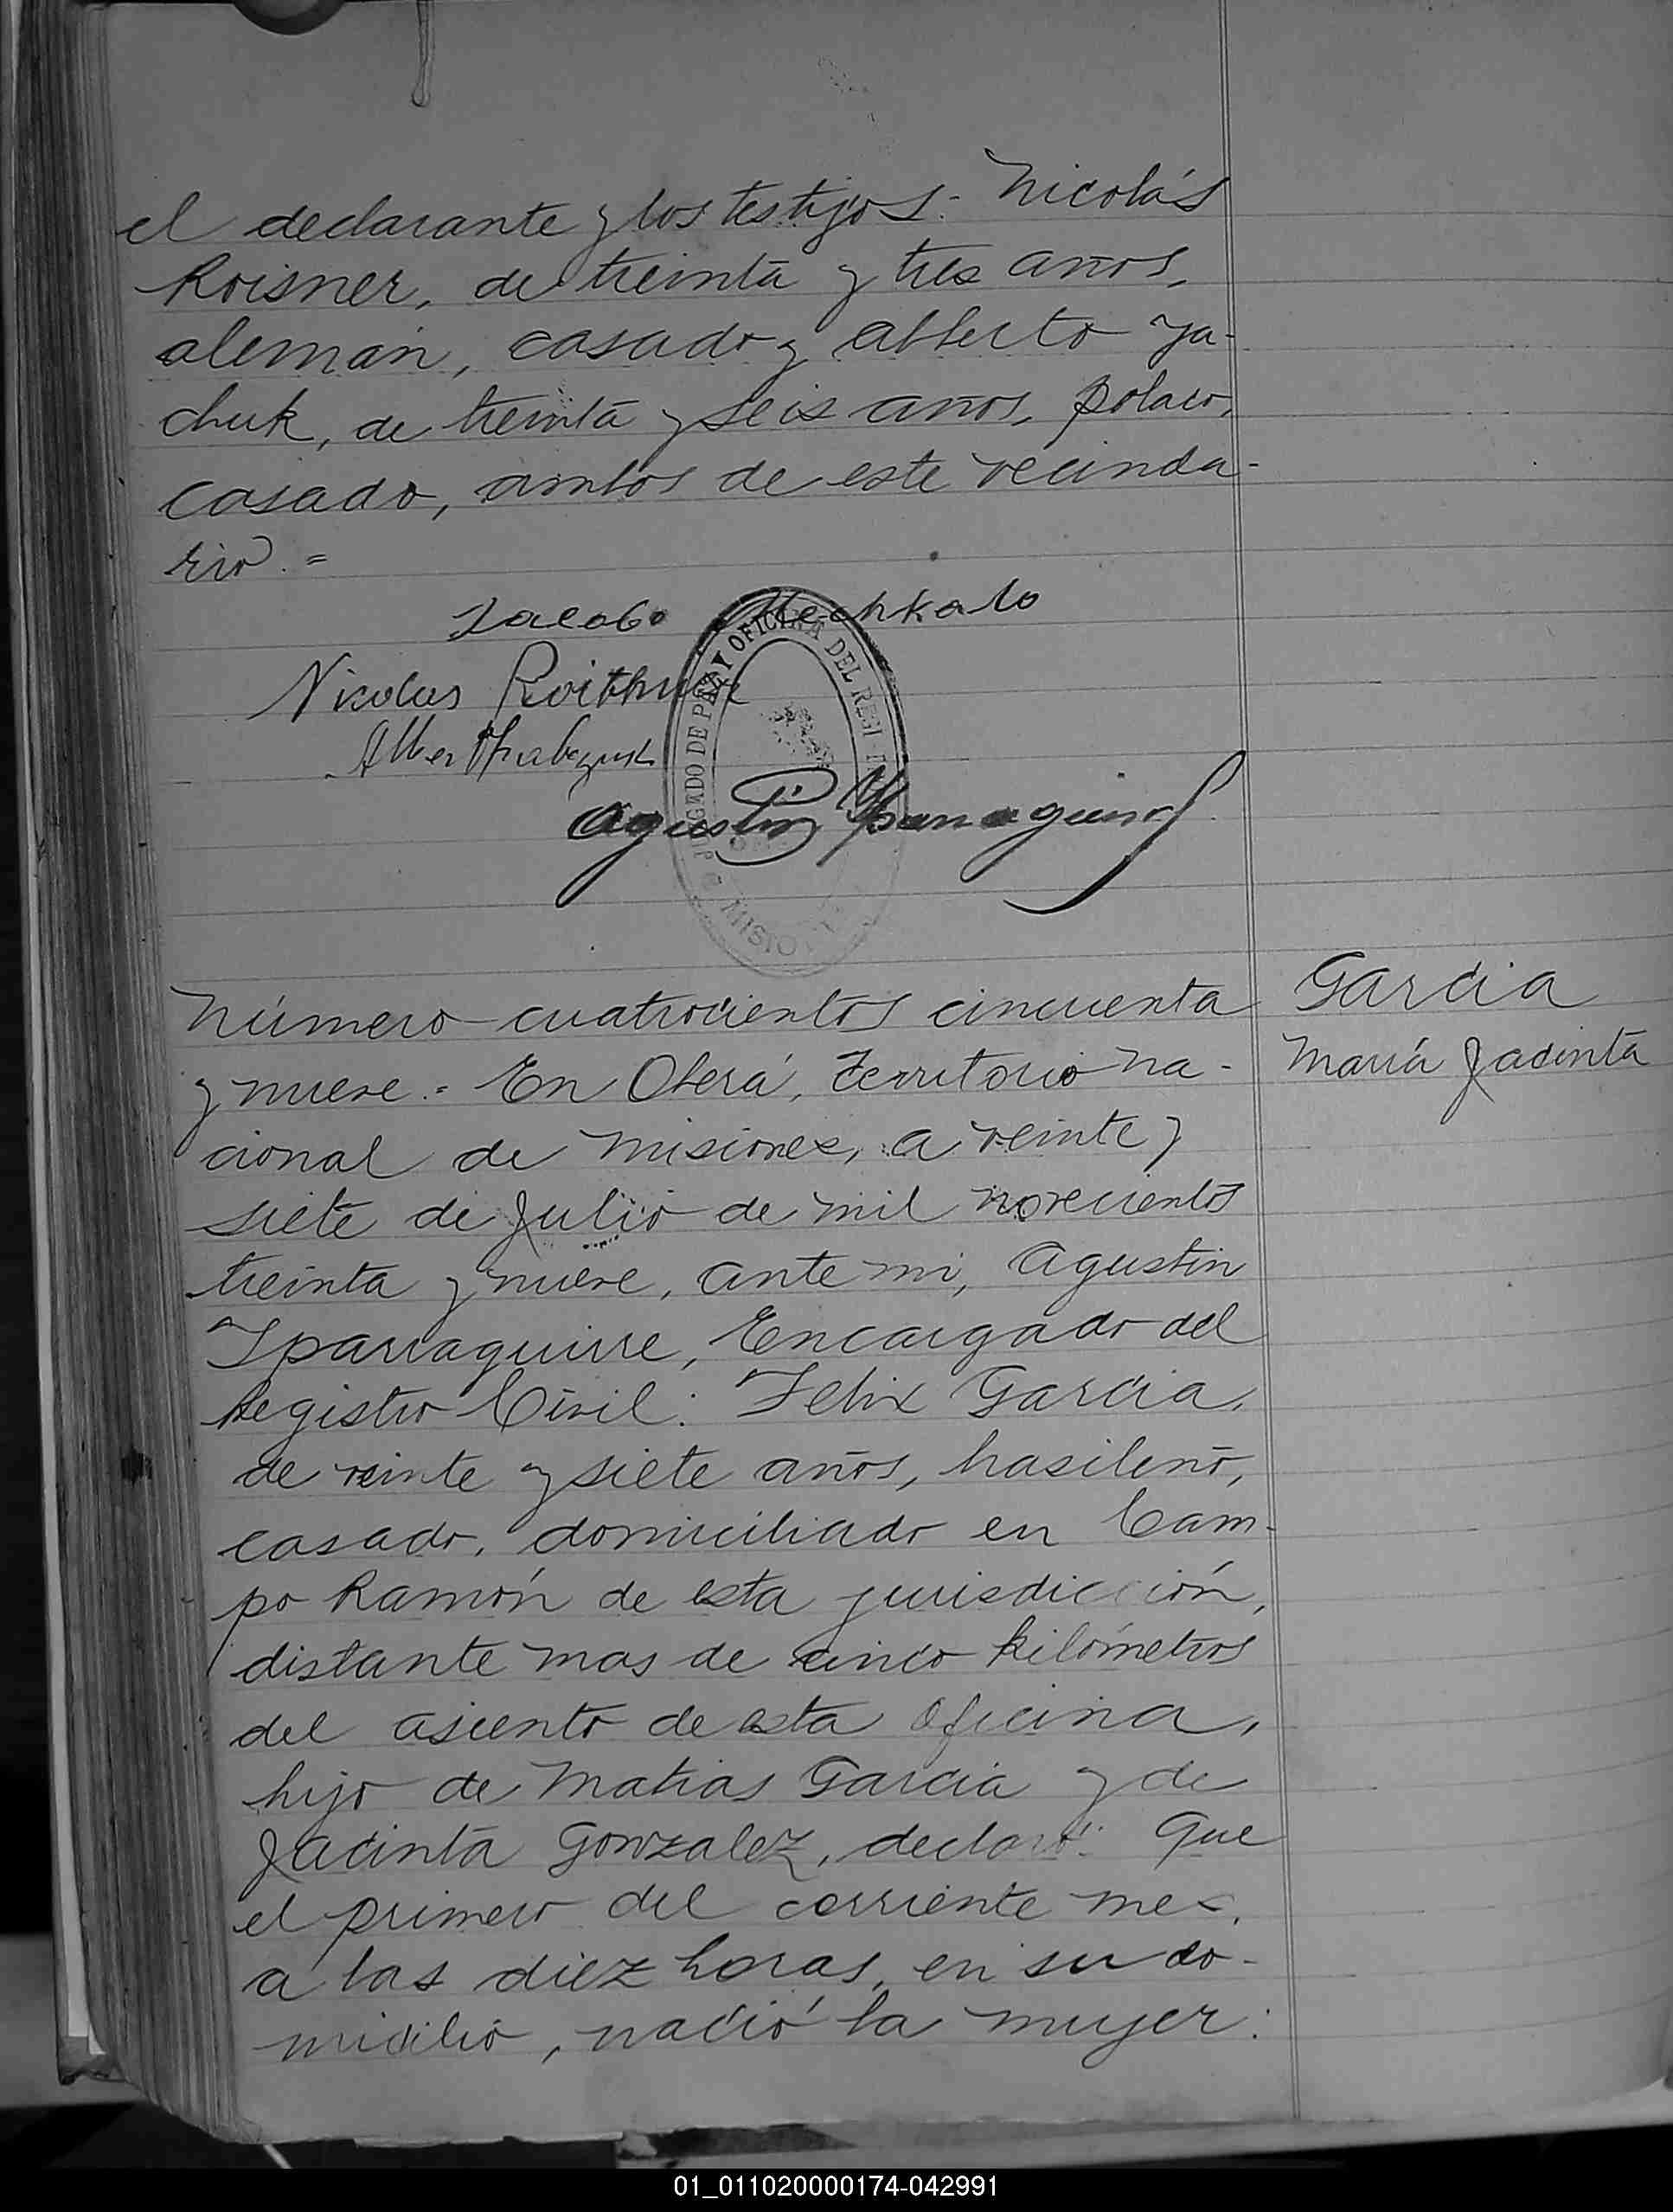 el declarante y los testigos: Nicolás
Roisner, de treinta y tres años,
alemán, casado y Alberto Ya-
chuk, de treinta y seis años, polaco,
casado, ambos de este vecinda-
rio.=
Jacobo Mechkalo
Nicolas
JUZGADO DE PAZ Y OFICINA DEL REGI
MISIO
Agustin Yparraguirre
Número cuatrocientos cincuenta
y nueve.= En Oberá, Territorio Na-
cional de Misiones, a veinte y
siete de Julio de mil novecientos
treinta y nueve, ante mi, Agustin
Yparraguirre, Encargado del
Registro Civil: Felix Garcia,
de veinte y siete años, brasileño,
casado, domiciliado en Cam-
po Ramón de esta jurisdicción,
distante mas de cinco kilómetros
del asiento de esta Oficina,
hijo de Matias Garcia y de
Jacinta Gonzalez, declaró: Que
el primero del corriente mes,
a las diez horas, en su do-
micilio, nació la mujer:
Garcia
María Jacinta
01_011020000174-042991